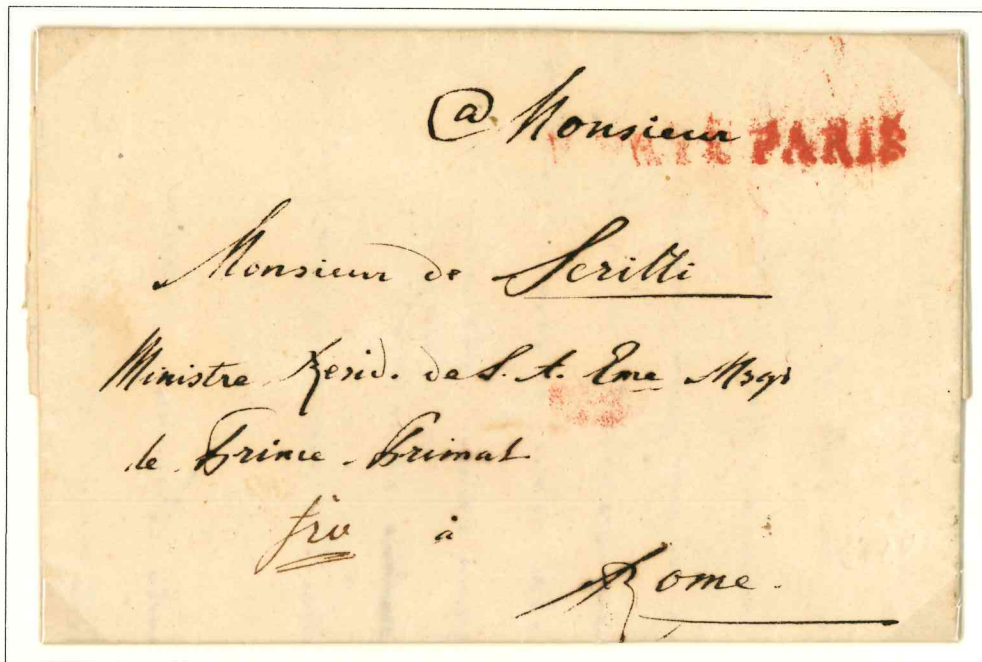 @ Monsieur
PARIS
Monsieur de Scritti
Ministre Resid. de S. A. Eme Msgr
le Prince Primat
fro à
Rome.